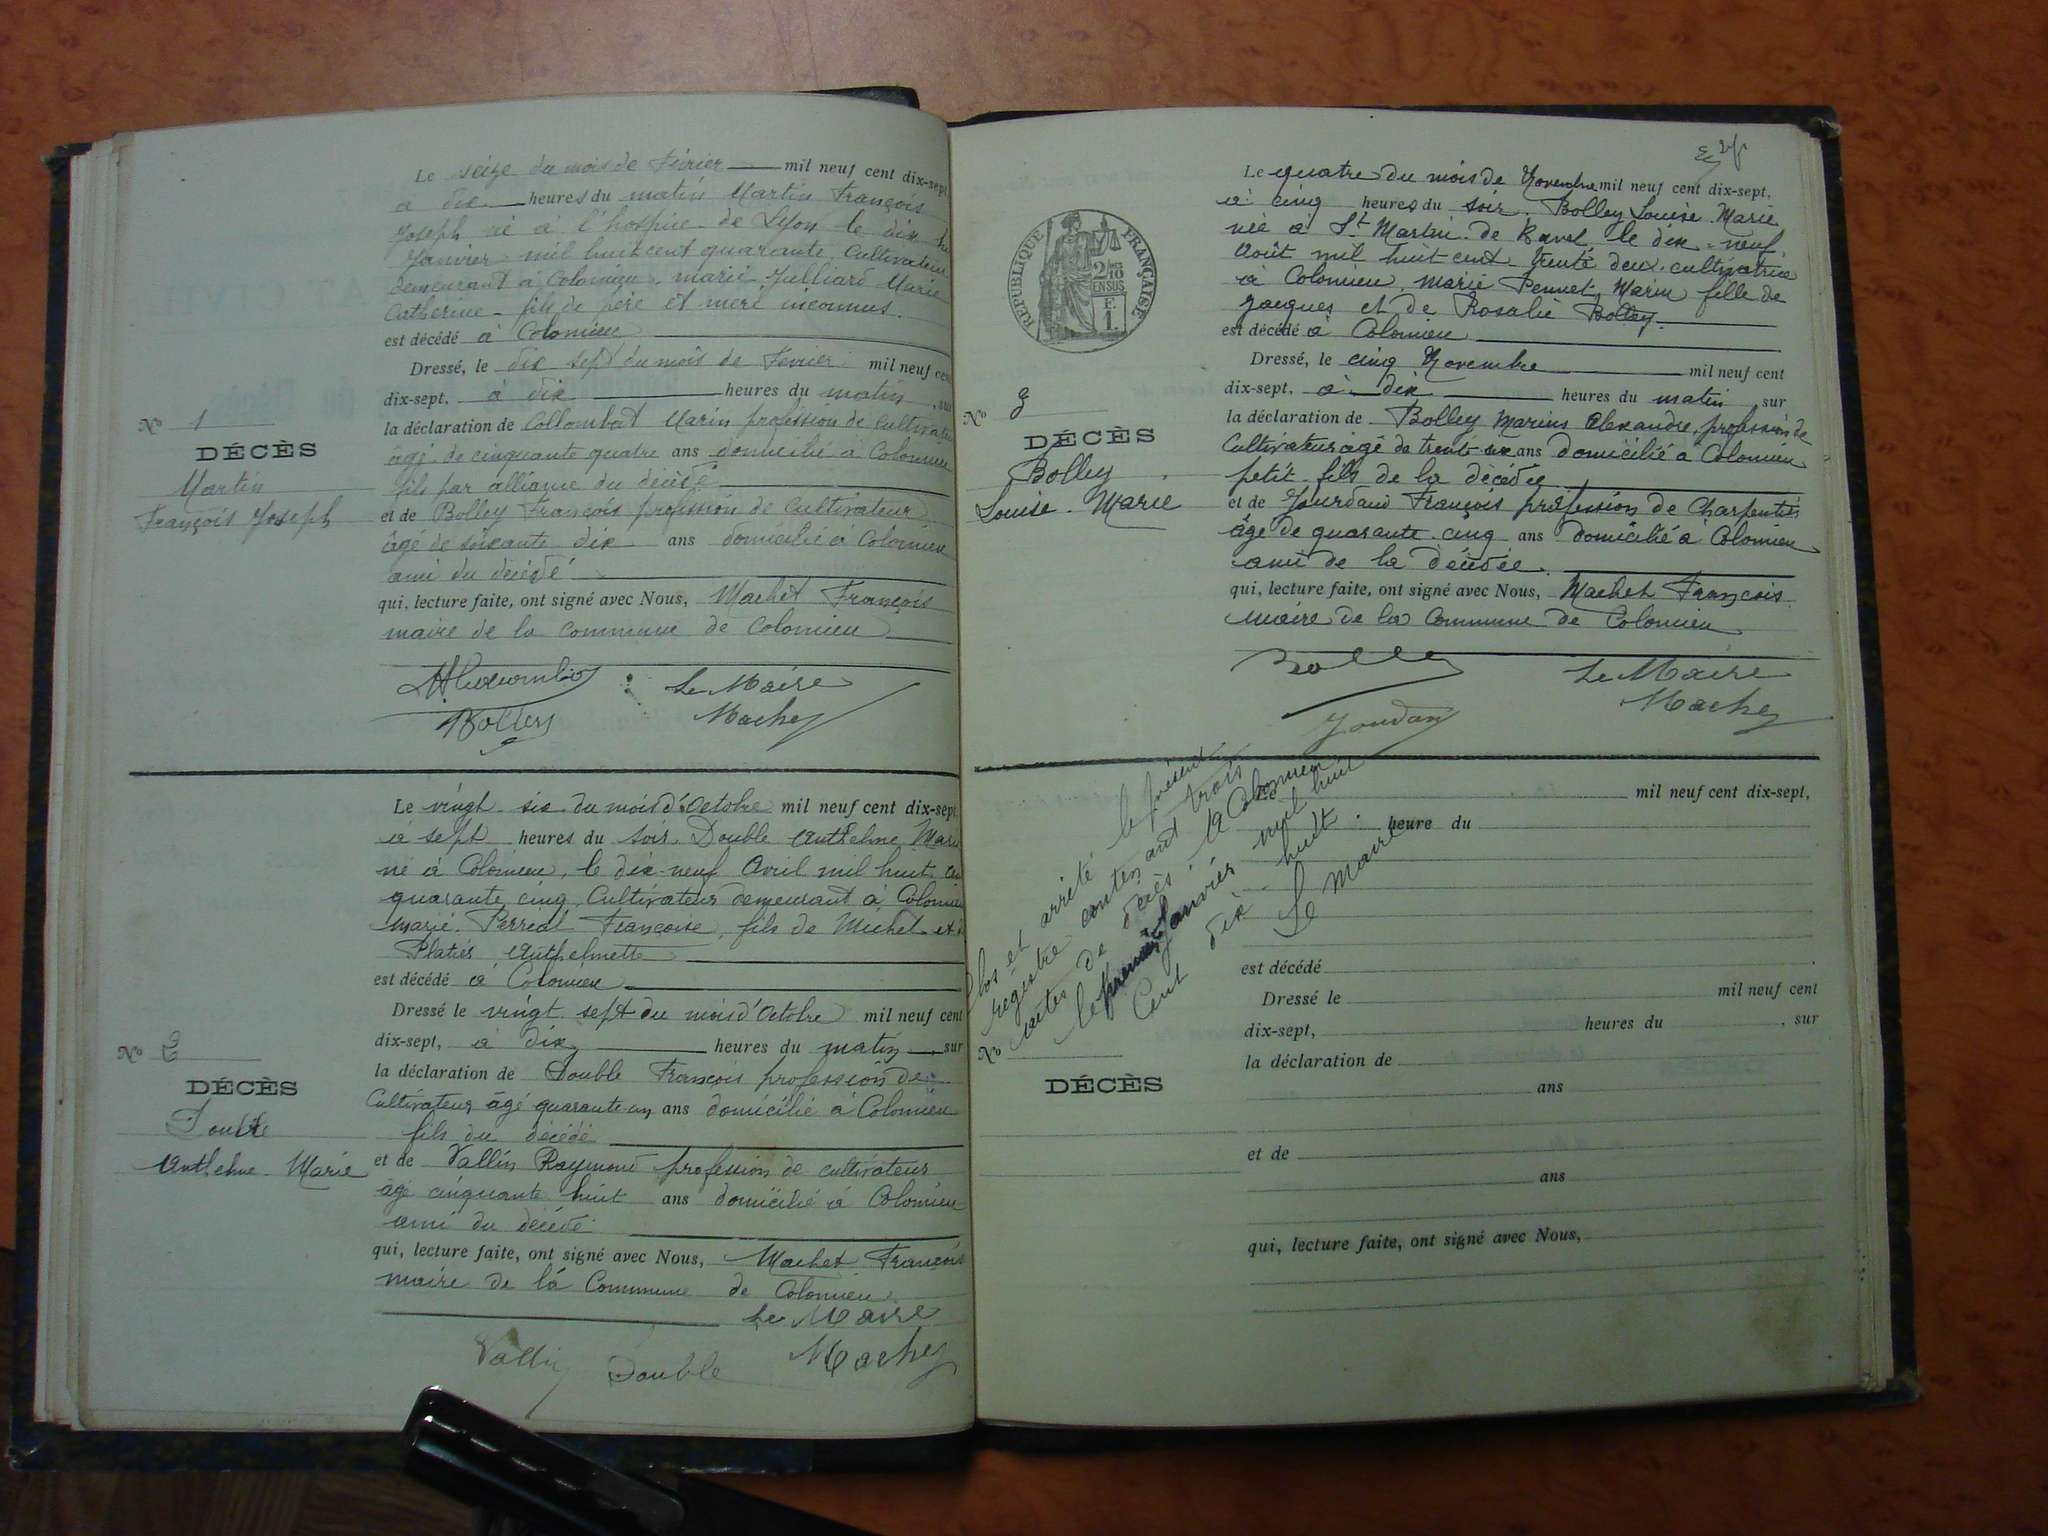 Le seize du mois de Février mil neuf cent dix-sept
à dix heures du matin Martin François
Joseph né à l'hospice de Lyon le dix
Janvier mil huit cent quarante, Cultivateur
demeurant à Colomieu, marié Juilliard Marie
Catherine fils de père et mère inconnus.
est décédé à Colomieu
Dressé, le dix sept du mois de Fevrier mil neuf cent
dix-sept, à dix heures du matin, sur
la déclaration de Collombat Marin profession de cultivateur
âgé de cinquante quatre ans domicilié à Colomieu
fils par alliance du décédé
et de Bolley François profession de Cultivateur
âgé de soixante dix ans domicilié à Colomieu
ami du décédé
qui, lecture faite, ont signé avec Nous, Machet François
maire de la commune de Colomieu
Le Maire
Bolley Machet
No 1
DÉCÈS
Martin
François Joseph
Le vingt six du mois d'Octobre mil neuf cent dix-sept
à sept heures du soir. Double Anthelme Marie
né à Colomieu, le dix neuf Avril mil huit cent
quarante cinq, Cultivateur demeurant à Colomieu
marié Perreal Françoise, fils de Michel et d
Platier Anthelmette
est décédé à Colomieu
Dressé le vingt sept du mois d'Octobre mil neuf cent
dix-sept, à dix heures du matin, sur
la déclaration de Double François profession de
Cultivateur âgé quarante un ans domicilié à Colomieu
fils du décédé
et de Vallin Raymond profession de cultivateur
âgé cinquante huit ans domicilié à Colomieu
ami du décédé
qui, lecture faite, ont signé avec Nous, Machet François
maire de la Commune de Colomieu.
Le Maire
Vallin Double Machet
No 2
DÉCÈS
Double
Anthelme Marie
RÉPUBLIQUE FRANÇAISE
2/10
EN SUS
F.
1.
Le quatre du mois de Novembre mil neuf cent dix-sept,
à cinq heures du soir. Bolley Louise Marie
née à St Martin de Bavel le dix-neuf
Août mil huit cent trente deux, cultivatrice
à Colomieu, marié Pennet Marin fille de
Jacques et de Rosalie Bolley
est décédé à Colomieu
Dressé, le cinq Novembre mil neuf cent
dix-sept, à dix heures du matin, sur
la déclaration de Bolley Marius Alexandre, profession de
Cultivateur âgé de trente six ans domicilié à Colomieu
petit-fils de la décédée
et de Jourdand François profession de Charpentier
âgé de quarante cinq ans domicilié à Colomieu
ami de la décédée.
qui, lecture faite, ont signé avec Nous, Machet François
maire de la Commune de Colomieu
Bolley Le Maire
Jourdan Machet
No 3
DÉCÈS
Bolley
Louise Marie
Clos et arrêté le présent
registre contenant trois
actes de décès. A Colomieu
le premier Janvier mil huit
cent dix huit.
Le Maire
Le mil neuf cent dix-sept,
heure du
est décédé
Dressé le mil neuf cent
dix-sept, heures du , sur
la déclaration de
ans
et de
ans
qui, lecture faite, ont signé avec Nous,
No
DÉCÈS